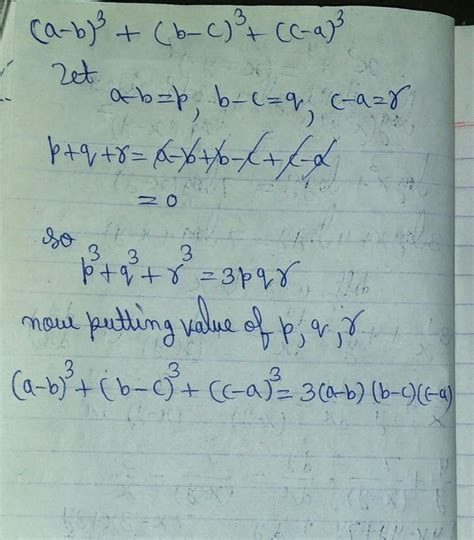 (a-b)³ + (b-c)³ + (c-a)³
Let
a-b=p, b-c=q, c-a=r
p+q+r= a-b+b-c+c-a
= 0
so
p³+q³+r³ = 3pqr
now putting value of p, q, r
(a-b)³+(b-c)³+(c-a)³= 3(a-b)(b-c)(c-a)